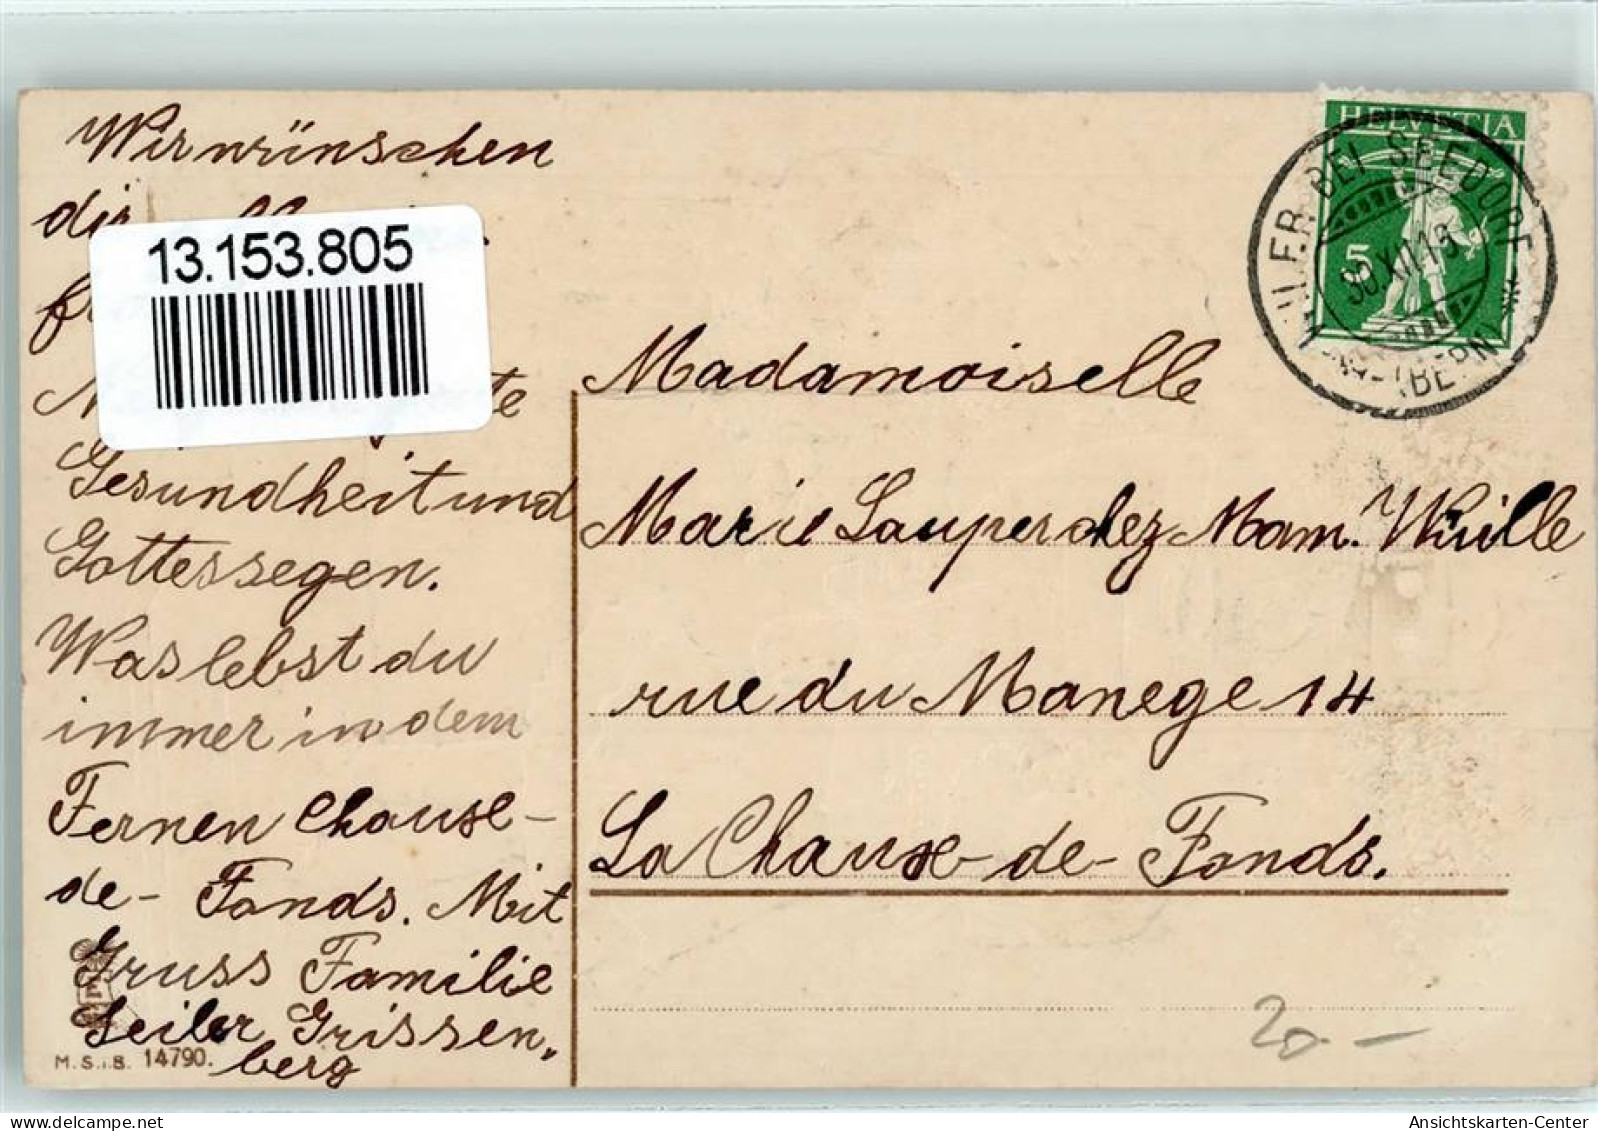 Wir wünschen
dir
13.153.805
Gesundheit und
Gottessegen.
Was lebst du
immer in dem
Fernen Chause-
de-Fonds. Mit
Gruss Familie
Seiler Grissen,
berg
M.S.i.B. 14790.
HELVETIA
5
WILER BEI SEEDORF
30.XII.
(BERN)
Madamoiselle
Marie Lauper chez Mam. Wuille
rue du Manege 14
La Chause-de-Fonds.
20.-
Ansichtskarten-Center